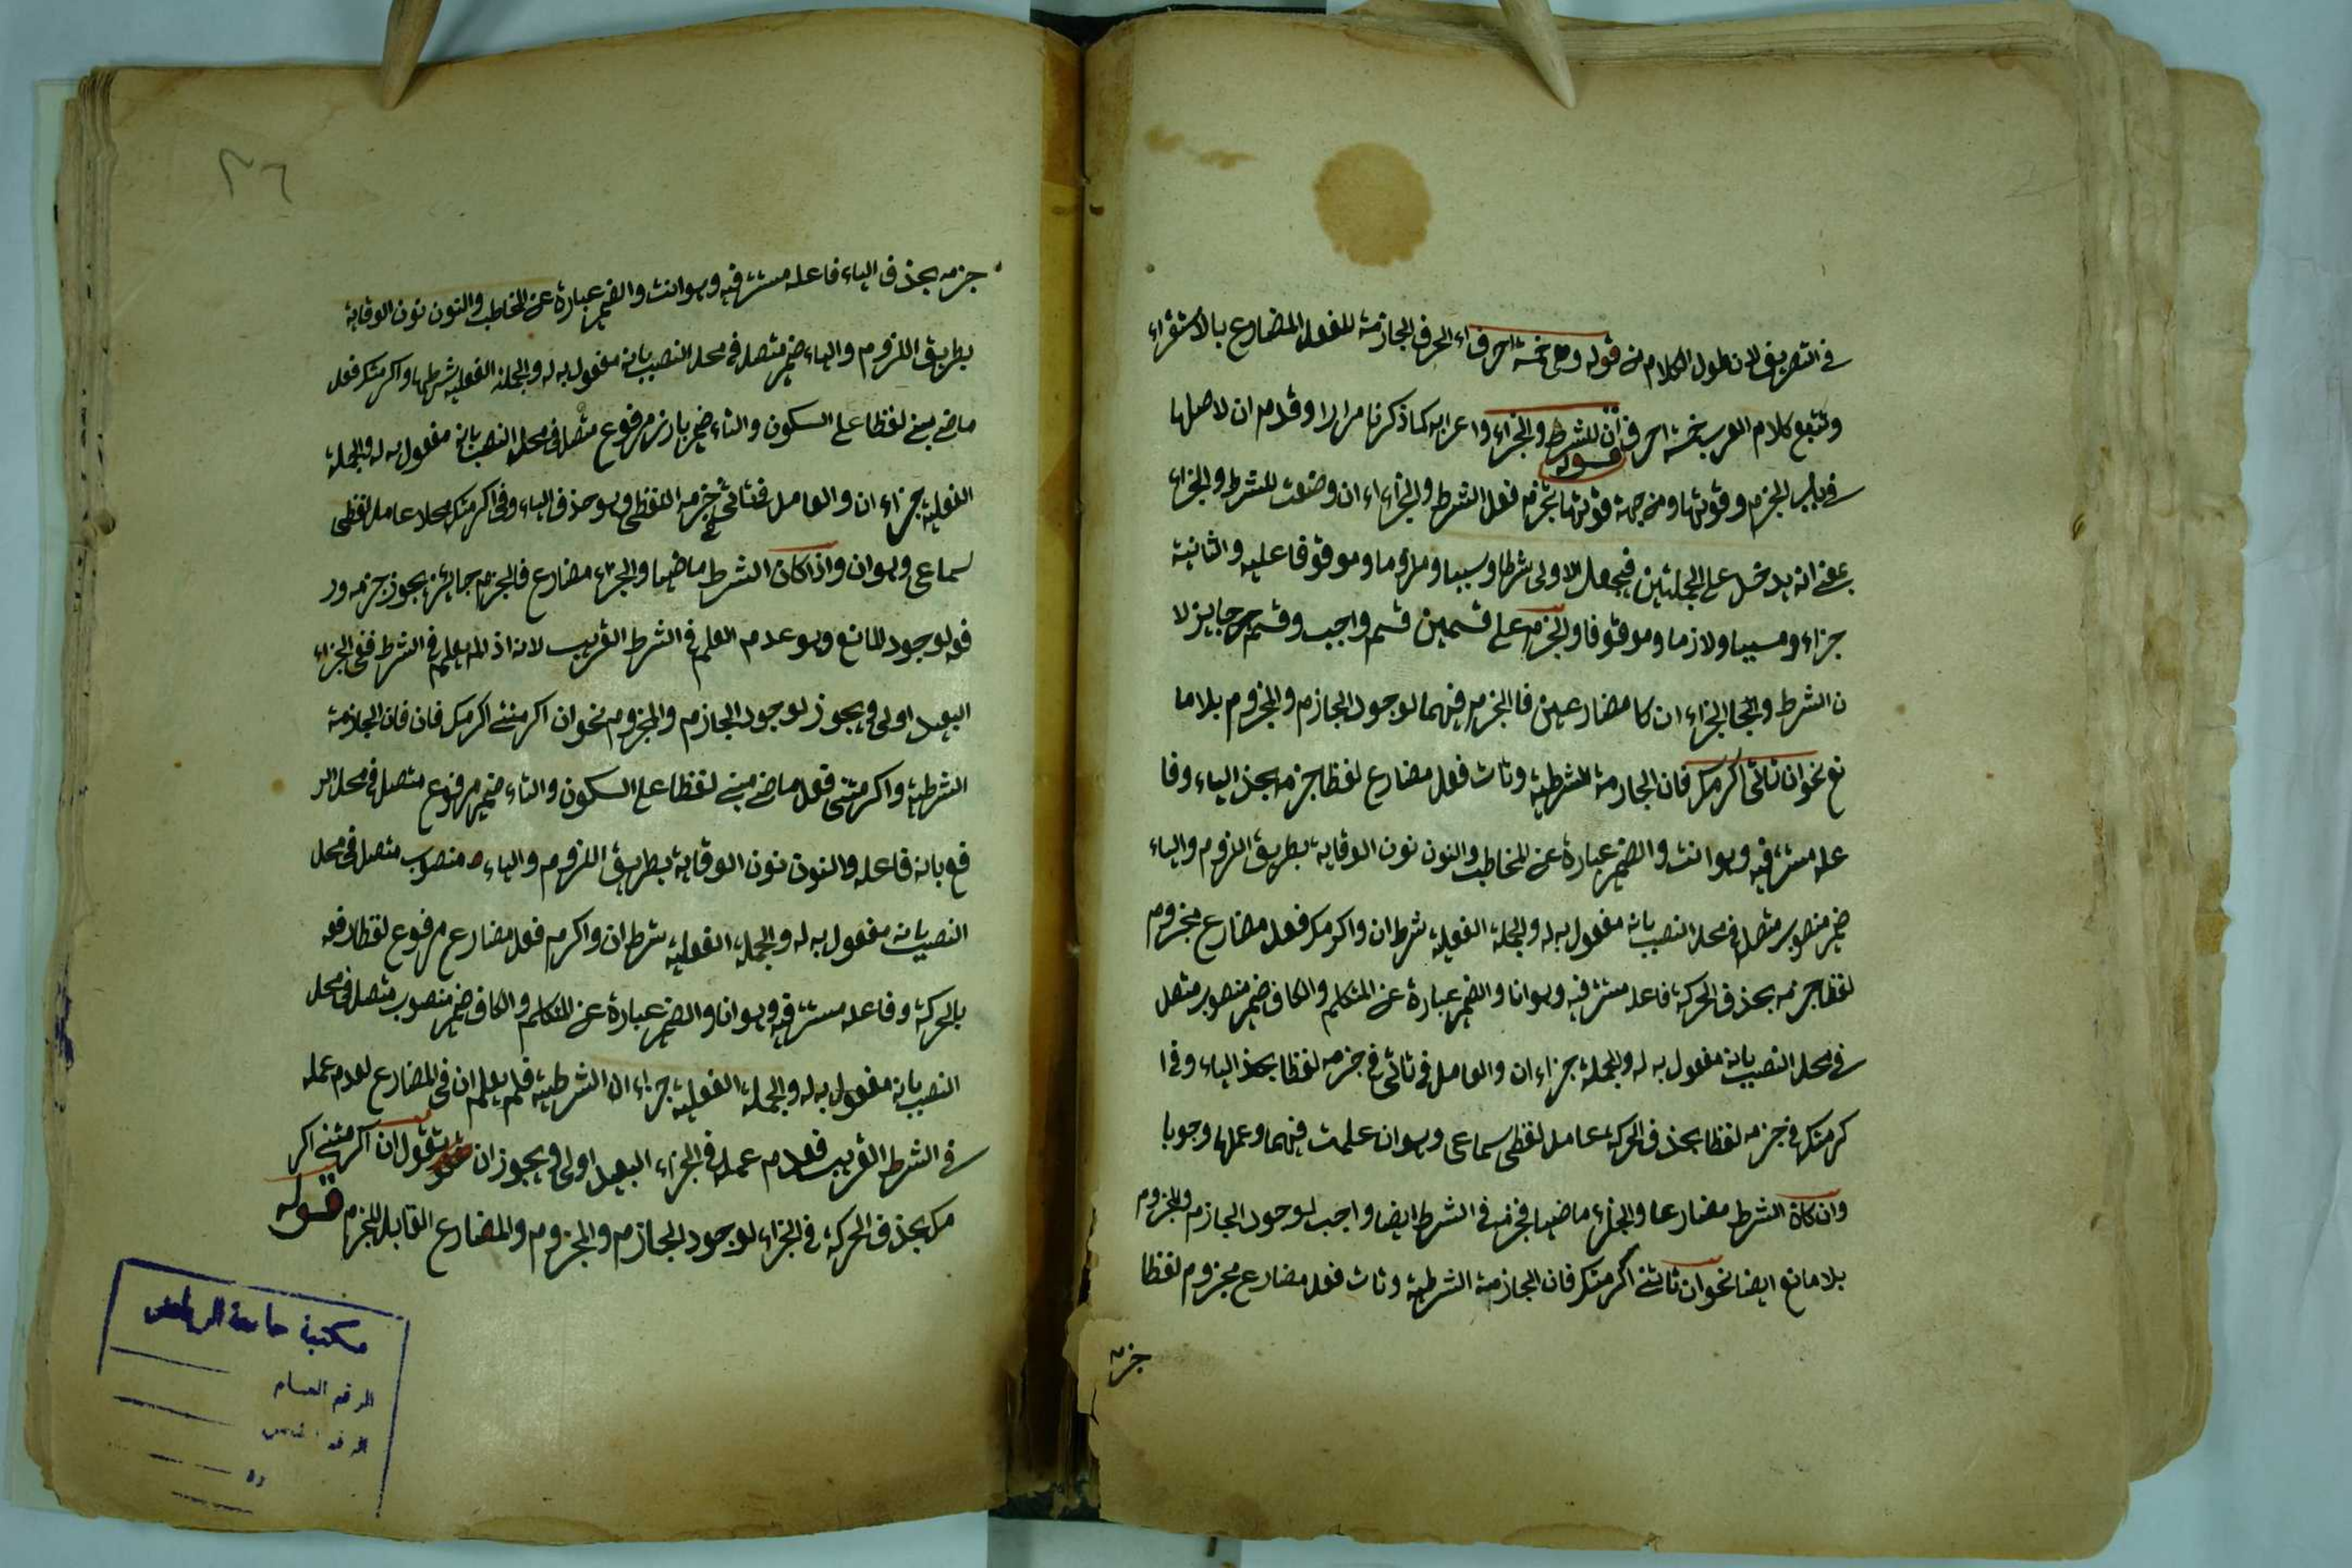 في التصريف لان طول الكلام من قوله وهي خمسة احرف اء الحرف الجازمة للفعل المضارع بالاستقراء
وتتبع كلام العرب خمسة احرف ان للشرط والجزاء واعرابه كما ذكرنا مرارا وقدم ان لاصلها
قوله
في باب الجزم وقوتها ومن جهة قوتها تجزم فعل الشرط والجزاء اء ان وضعت للشرط والجزاء
يعني انه يدخل على الجملتين فيجعل الاولى شرطا وسببا وملزوما وموقوفا عليه والثانية
جزاء ومسببا ولازما وموقوفا والجزم على قسمين قسم واجب وقسم جايز لا
ن الشرط والجزاء ان كا مضارعين فالجزم فيهما لوجود الجازم والمجزوم بلا ما
نع نحو ان تاتني اكرمك فان الجازمة للشرطية وتات فعل مضارع لفظا جزمه بحذف الياء وفا
عله مستتر فيه وهو انت والضمير عبارة عن المخاطب والنون نون الوقاية بطريق اللزوم والياء
ضمير منصوب متصل في محل النصب بانه مفعول به له والجملة الفعلية شرط ان واكرمك فعل مضارع مجزوم
لفظا جزمه بحذف الحركة فاعله مستتر فيه وهو انا والضمير عبارة عن المتكلم والكاف ضمير منصوب متصل
في محل النصب بانه مفعول به له والجملة جزاء ان والعامل في تاتني في جزمه لفظا بحذف الياء وفي ا
كرمتك في جزمه لفظا بحذف الحركة عامل لفظي سماعي وهو ان علمت فيهما وعملها وجوبا
وان كان الشرط مضارعا والجزاء ماضيا فجزمه في الشرط ايضا واجب لوجود الجازم والمجزوم
بلا مانع ايضا نحو ان تاتني اكرمتك فان الجازمة الشرطية وتات فعل مضارع مجزوم لفظا
جزمه
٣٦
جزمه بحذف الياء فاعله مستتر فيه وهو انت والضمير عبارة عن المخاطب والنون نون الوقاية
بطريق اللزوم والياء ضمير متصل في محل النصب بانه مفعول به له والجملة الفعلية شرطها واكرمتك فعل
ماضي مبني لفظا على السكون والتاء ضمير بارز مرفوع متصل في محل النصب بانه مفعول به له والجملة
الفعلية جزاء ان والعامل في تاتني جزمه اللفظي وهو حذف الياء وفي اكرمتك محلا عامل لفظي
سماعي وهو ان واذا كان الشرط ماضيا والجزاء مضارع فالجزم جائز يجوز جزمه ور
فعه لوجود المانع وهو عدم العلم في الشرط القريب لانه اذا لم يعلم في الشرط ففي الجزاء
البعيد اولى ويجوز لوجود الجازم والمجزوم نحو ان اكرمتني اكرمك فان فان الجازمة
الشرطية واكرمتني فعل ماضي مبني لفظا على السكون والتاء ضمير مرفوع متصل في محل الر
فع بانه فاعله والنون نون الوقاية بطريق اللزوم والياء ض منصوب متصل في محل
النصب بانه مفعول به له والجملة الفعلية شرط ان واكرم فعل مضارع مرفوع لفظا رفعه
بالحركة وفاعله مستتر فيه وهو انا والضمير عبارة عن المتكلم والكاف ضمير منصوب متصل في محل
النصب بانه مفعول به له والجملة الفعلية جزاء ان الشرطية فلم يعلم ان في المضارع لعدم عمله
في الشرط القريب فعدم عمله في الجزاء البعيد اولى ويجوز ان تقول ان اكرمتني اكر
مك بحذف الحركة في الجزاء لوجود الجازم والمجزوم والمضارع القابل للجزم قوله
مكتبة جامعة الرياض
الرقم العام